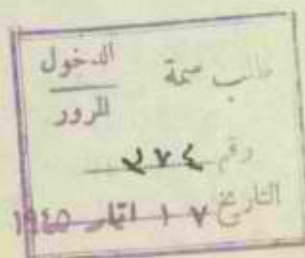 طالب سمة الدخول
للمرور
رقم ٣٧٤
التاريخ ١٧ ايار 1945